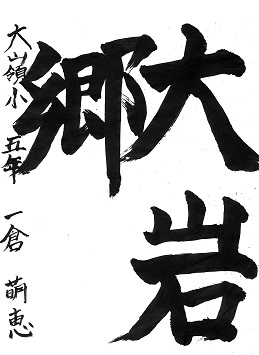 大岩
郷
大山領小 五年 一倉 萌恵